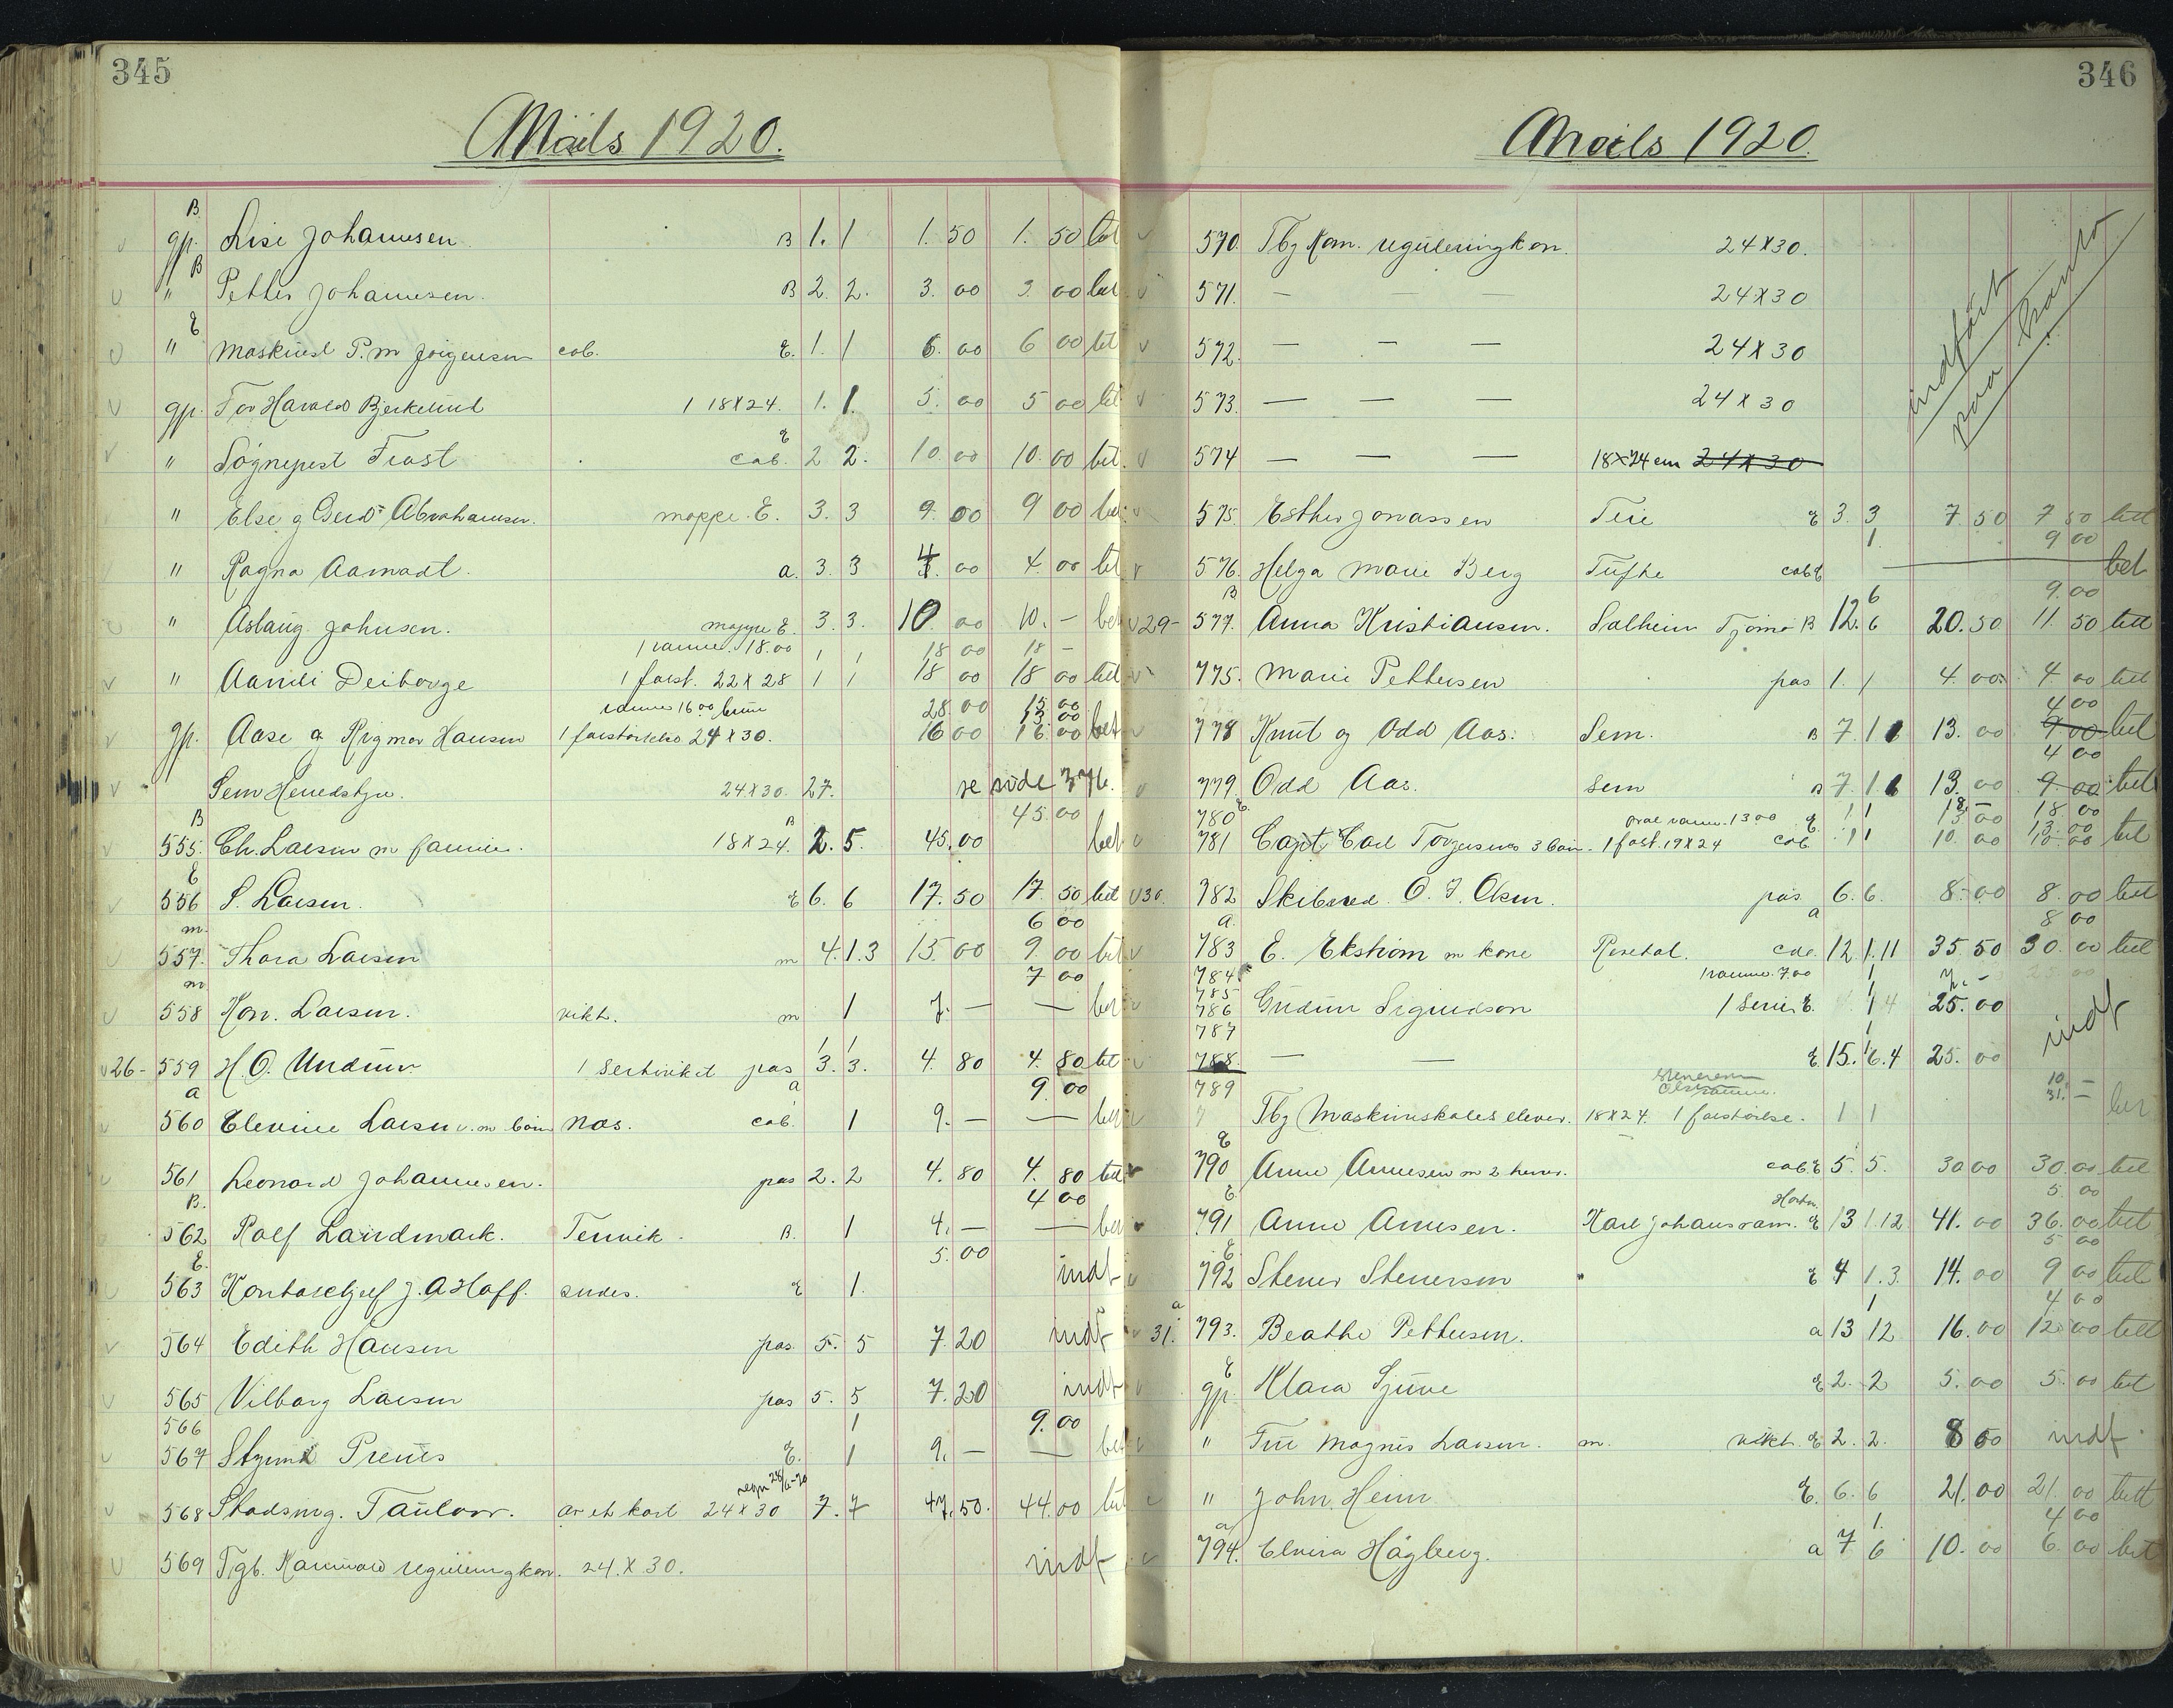 345
Mails 1920.
B
gp. Lise Johannesen B 1. 1 1. 50 1. 50 bet
B
" Petter Johannesen. B 2. 2. 3. 00 3. 00 bet
E
" Maskinst P. M Jörgensen cab. E. 1. 1 6. 00 6 00 bet
gp. Tor Harald Bjerkelund 1 18X24. 1. 1. 5. 00 5 00 bet
E
" Sognepest Frost cab. 2 2. 10. 00 10. 00 bet.
" Else g Gerd Abrahamsen. mappe. E. 3. 3 9. 00 9 00 bet
" Ragna Aamodt. a. 3. 3 4. 00 4. 00 bet
" Aslaug Johnsen. mappe E. 3. 3. 10 00 10. – bet
1 ramme. 18.00 1 1 18 00 18 –
" Aamdi Deiborge 1 forst. 22 X 28 1 1 18 00 18 00 bet
ramme 16 00 brun 28. 00 15 00
13 00
gp. Aase g Rigmor Hansen 1 forstörrelse 24 X 30. 16 00 16. 00 bet
Sem Herredstyre. 24X30. 27. se side 376.
B B 45. 00
555. Ch. Larsen m familie. 18X24. 2. 5. 45. 00 bet
E
556 S. Larsen. E 6. 6 17. 50 17. 50 bet
m. 6 00
557. Thora Larsen m 4. 1. 3 15. 00 9. 00 bet
m 7 00
558 Kon. Larsen. vikt. m 1 7. – – bet
1 1
26- 559 H. O. Undrum 1 Sertivikat pas 3. 3. 4. 80 4. 80 bet
a a 9. 00
560 Elevine Larsen v. m barn Nøs. cab. 1 9. – – bet
561 Leonard Johannesen. pas 2. 2 4. 80 4. 80 bet
B. 4 00
562 Rolf Landmark. Tenvik. B. 1 4. – – bet
E. 5. 00
563 Kontorchef J. A Hoff. andes. E 1. indf
564 Edith Hansen pas 5. 5 7. 20 indf
565 Vilborg Larsen pas 5. 5 7. 20 indf
566 1 9. 00
567 Sigurd Preus E. 1 9. – – bet
regn 28/6-20
568 Stadsing. Taulow. av et kart 24 X 30 7. 7 47. 50. 44. 00 bet
569 Tgb. Kommune reguleringkon. 24. X 30. indf
346
Mails 1920
570. Tbg Kom. reguleringkon. 24X30.
571. – – – 24X30
572. – – – 24X30
573. – – – 24X30
574 – – – 18X24 cm 24X30
indført paa konto
575. Esther Jonassen Teie E 3. 3 7. 50 7 50 bett
1. 9 00
576. Helga Marie Berg Tufte cab E bet
B 6 9. 00
29- 577. Anna Kristiansen. Solheim Tjömö B 12. 6 20. 50 11. 50 bett
775. Marie Pettersen pas 1. 1 4. 00 4. 00 bett
4 00
778 Knut og Odd Aas. Sem. B 7. 1 6 13. 00 9 00 bet
4 00
779. Odd Aas. Sem B 7. 1 6 13. 00 9. 00 bet
780 E 1 1 18. – 18. 00
oval ramme. 13 00 E. 13 00 13. 00
781 Capt Carl Torgersens 3 barn. 1 forst. 19X24 cab 1 1 10. 00 10. 00 bet
30. 782 Skibsred. O. J. Olsen. pas 6. 6. 8. 00 8. 00 bett
a. a 8 00
783 E. Ekström m kone Rosedal. cab. 12. 1. 11 35. 50 30. 00 bett
784 1 ramme. 7.00 1 7. –
785
786 Gudrun Sigurdson 1 Serie E. 1 4 25. 00 indf
787 1
788 – – E 15. 1. 6. 4 25. 00
789 10. –
31. –
Tbg Maskinskoles elever. 18X24. 1 forstörelse. 1 1 bet
E
790 Anna Annesen m 2 herrer. cab. E 5. 5. 30 00 30. 00 bet
E. 5. 00
791 Anne Annesen. Karl Johans ram. E 13 1. 12 41. 00 36. 00 bet
E. 5 00
792 Stener Stenersen E 4 1. 3. 14. 00 9 00 bet
a 1 4 00
31. 793. Beathe Pettersen. a 13 12 16. 00 12 00 bett
E
gp. Klara Sjuve E 2. 2 5. 00 5. 00 bet
" Fru Magnus Larsen. m. vikt. E 2. 2. 8 50 indf.
" John Heim E. 6. 6 21. 00 21. 00 bett
a 1. 4 00
794. Elvira Hägberg. a 7 6 10. 00 6. 00 bet